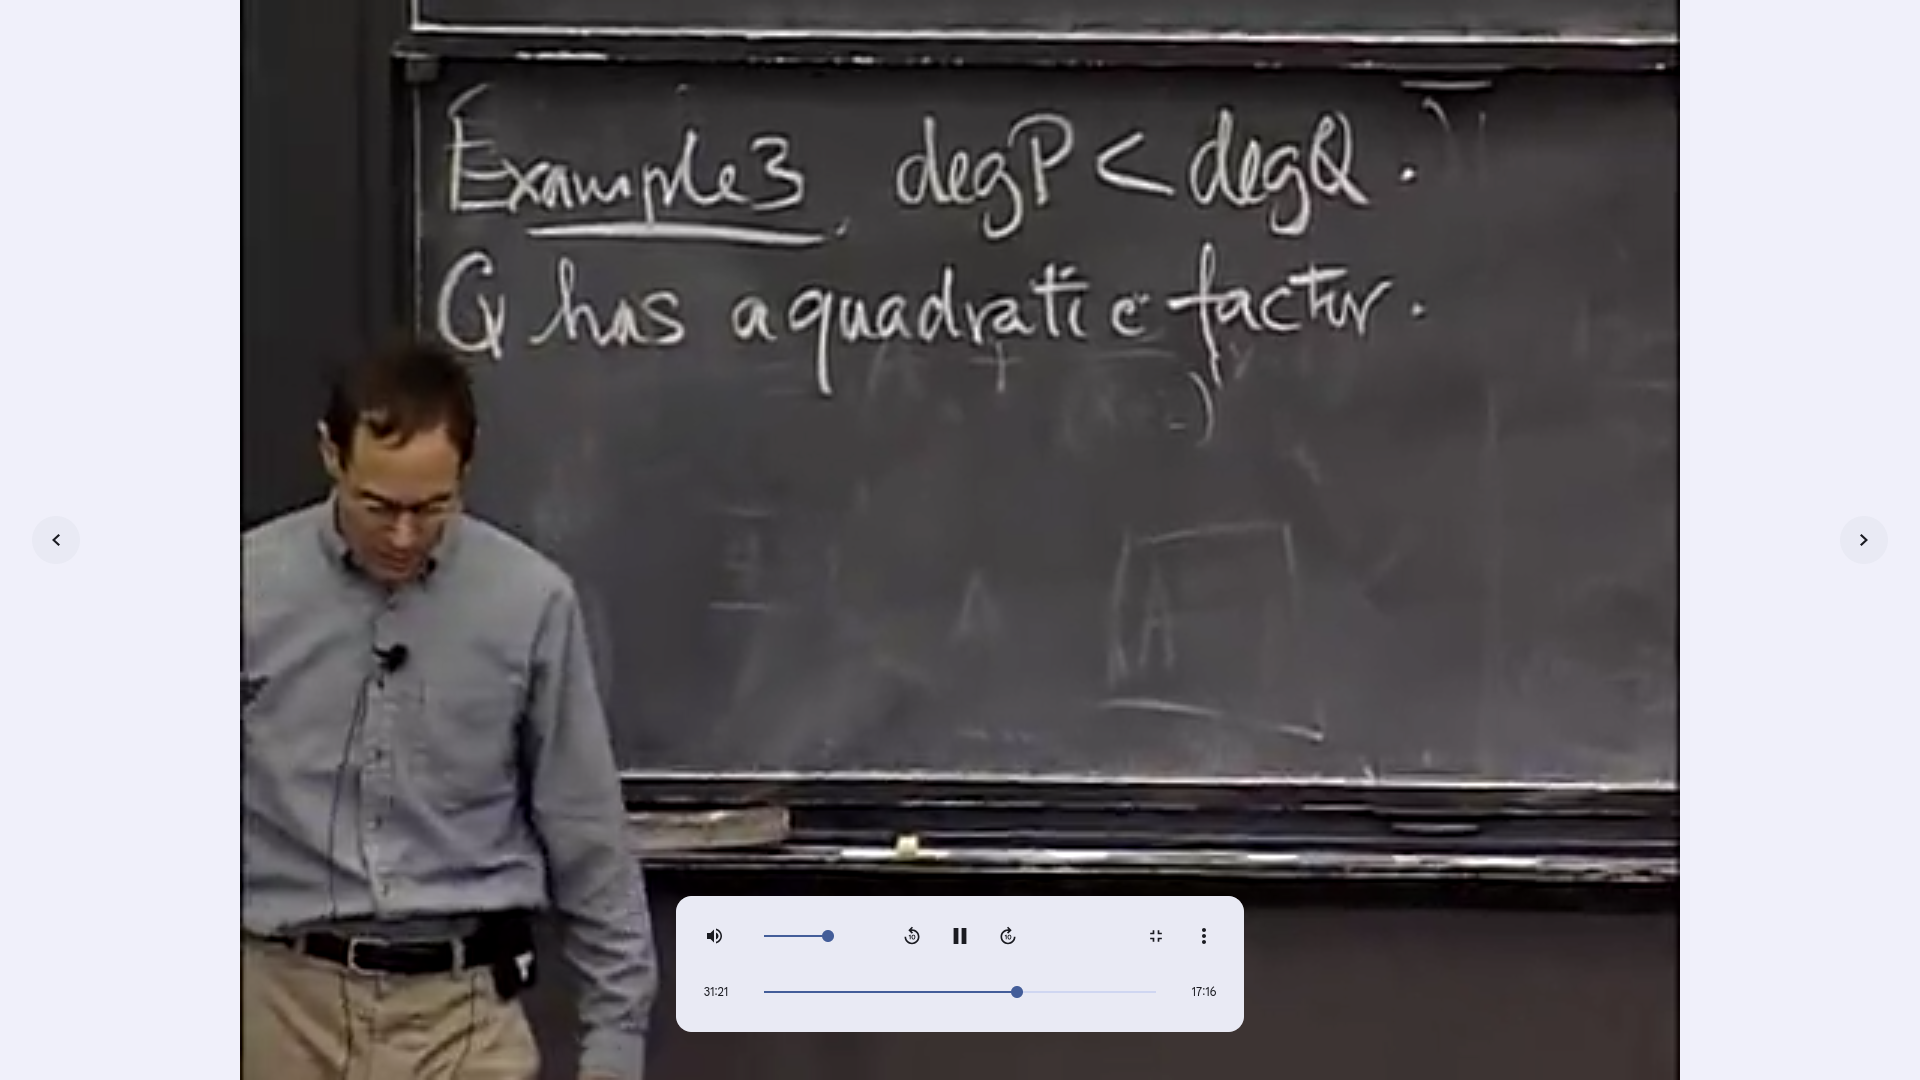 Example 3. deg P < deg Q.
Q has a quadratic factor.
A
A
31:21
17:16